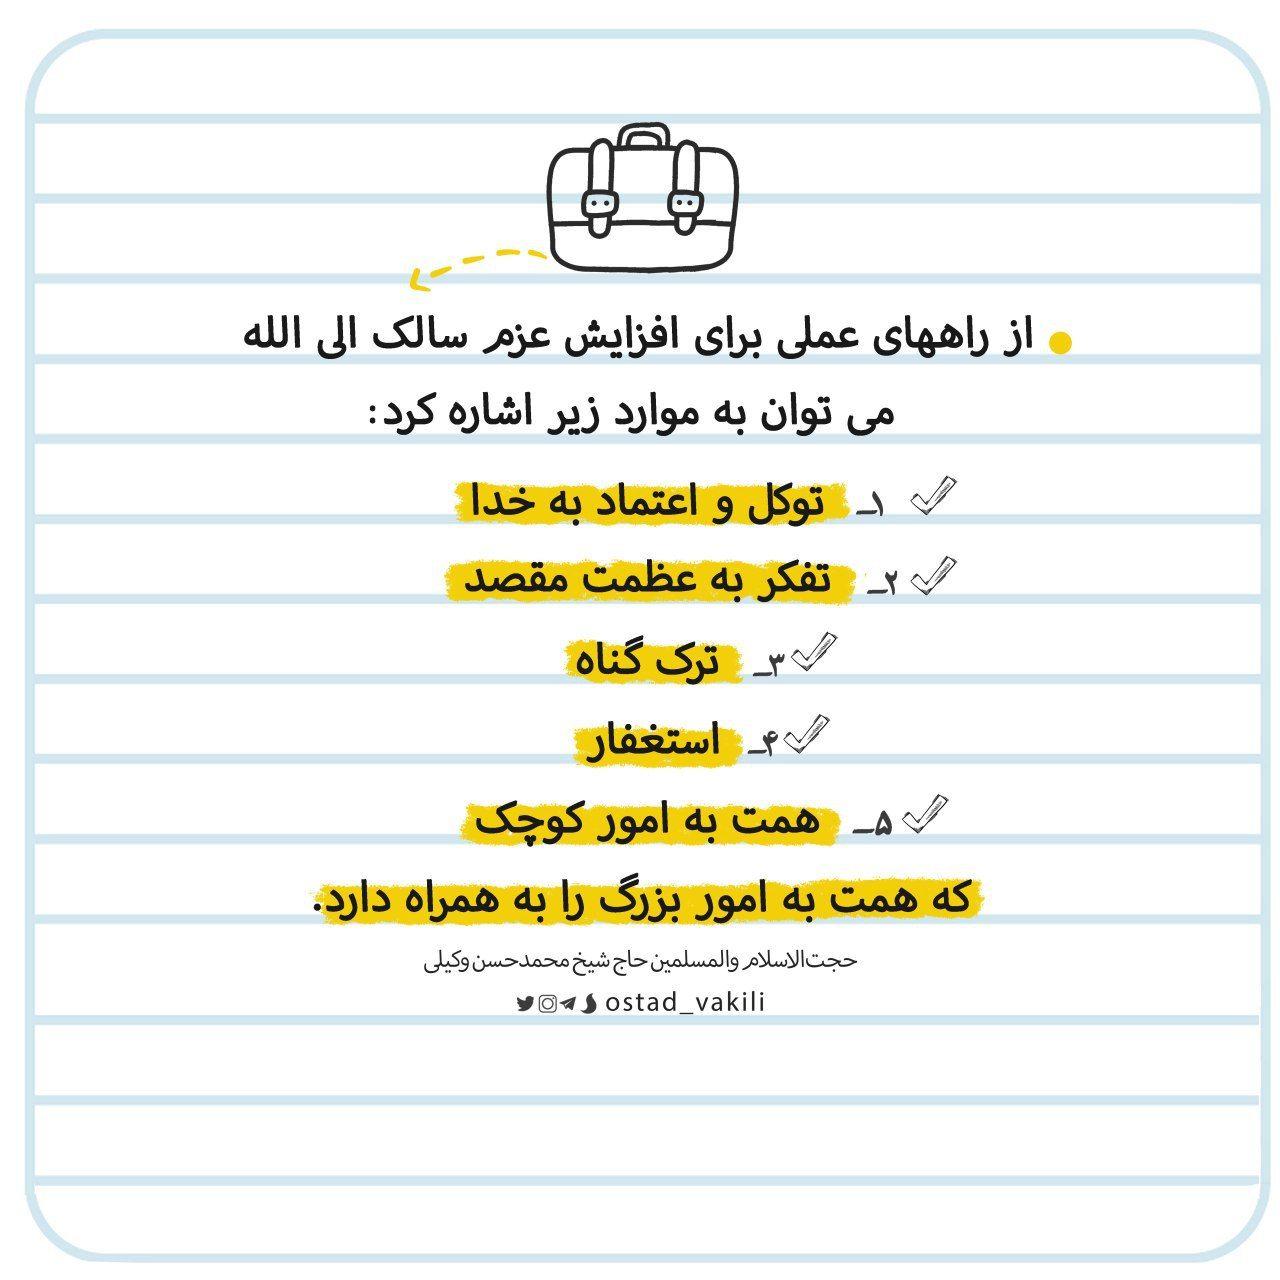 از راههای عملی برای افزایش عزم سالک الی الله
می توان به موارد زیر اشاره کرد:
۱_ توکل و اعتماد به خدا
۲_ تفکر به عظمت مقصد
۳_ ترک گناه
۴_ استغفار
۵_ همت به امور کوچک
که همت به امور بزرگ را به همراه دارد.
حجت‌الاسلام والمسلمین حاج شیخ محمدحسن وکیلی
ostad_vakili